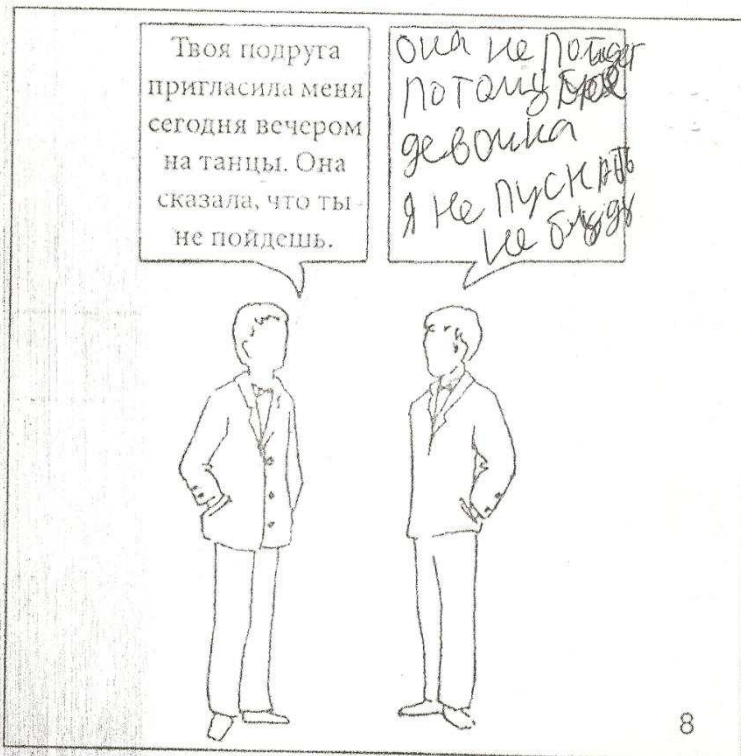 Твоя подруга
пригласила меня
сегодня вечером
на танцы. Она
сказала, что ты
не пойдешь.
она не пойдет
потому
девошка
я не пускать
не буду
8